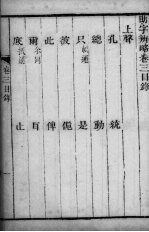 助字辨略卷三目錄
上聲
孔
統
總
動
只 帆通
是
彼
傀
此
俾
爾 尒同
耳
底
止
卷三目錄